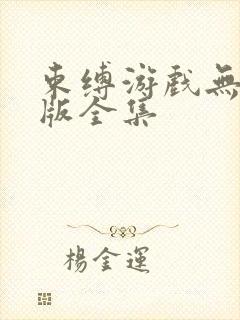 束缚游戏無
版全集
楊金運